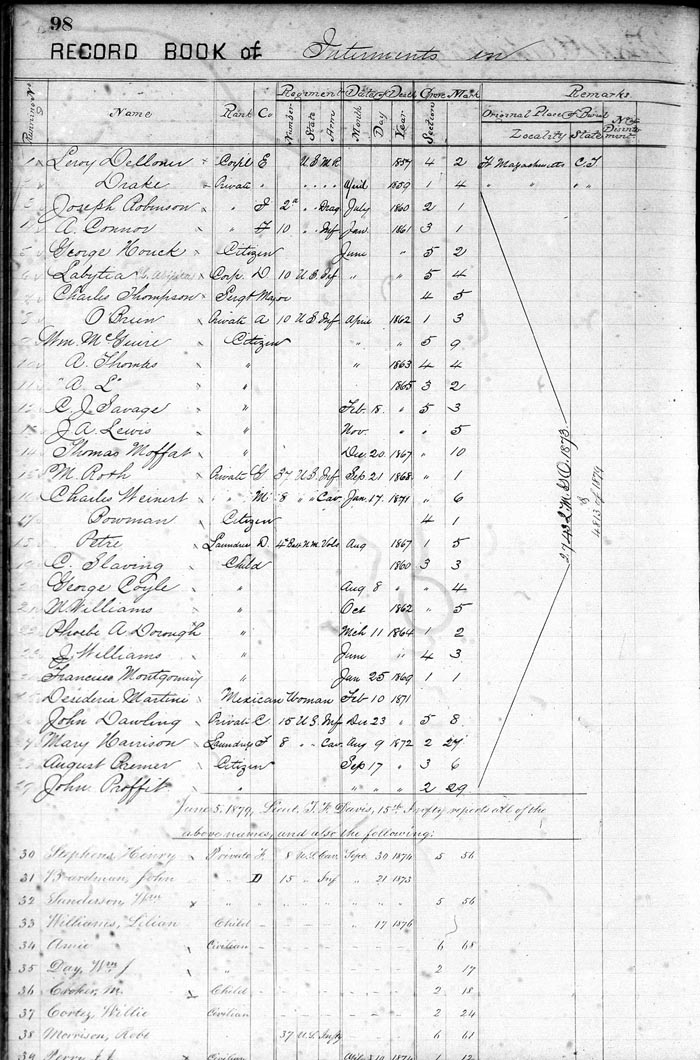 98
RECORD BOOK of Interments in
Running No. Name Rank Co Regiment Number State Arm Date of Death Month Day Year Grave Mark Section Remarks
Original Place of Burial Locality State No. of Disinterment
1 Leroy Corpl E U S M R 1857 4 2 Ft Massachusetts C.T.
2 Drake Private " . . . . April 1859 1 4 " " " "
3 Joseph Robinson " I 2d " Drag July 1860 2 1
4 A. Connor " F 10 " Inf Jan. 1861 3 1
5 George Houck Citizen June " 5 2
6 Labytia Corp. D. 10 U.S. Inf " " 5 4
7 Charles Thompson Sergt Major 4 5
8 O'Brien Private A 10 U.S. Inf April 1862 1 3
9 Wm. McGuire Citizen " " 5 9
10 A. Thomas " " 1863 4 4
11 "A. L" " 1865 3 2
12 C. J. Savage " Feb. 18. " 5 3
13 J. A. Lewis " Nov. " " 5
14 Thomas Moffat " Dec. 20. 1867 " 10
15 M. Roth Private G 37 U.S. Inf Sep. 21 1868 " 1
16 Charles Weinert " " 8 " " Cav. Jan. 17. 1871 " 6
17 Bowman Citizen 4 1
18 Petre Laundress D. 4th N.M. Vols Aug 1867 1 5
19 C. Slaving Child 1860 3 3
20 George Coyle " Aug 8 " " 4
21 M. Williams " Oct 1862 " 5
22 Phoebe A Dorough " Mch 11 1864 1 2
23 J. Williams " June " 4 3
24 Francisco Montgomery " Jan 25 1869 1 1
25 Desideria Martini Mexican Woman Feb 10 1871
26 John Dawling Private C. 15 U.S. Inf Dec 23 " 5 8
27 Mary Harrison Laundress F 8 " " Cav. Aug 9 1872 2 27
28 August Citizen Sep 17 " 3 6
29 John Proffit " " " " 2 29
2743 Q.M.G.O. 1873.
&
4813 of 1874
June 5, 1879, Lieut. T. F. Davis, 15th Infty reports all of the
above names, and also the following:
30 Stephens, Henry Private F. 8 U.S. Cav Sept. 30 1874 5 56
31 Boardman, John " D 15 " Inf " 21 1873
32 Sanderson, Wm " " " " " " " 5 56
33 Williams, Lilian Child - - - - " 17 1876
34 Civilian - - - - - - - 6 68
35 Day, Wm J " - - - - - - - 2 17
36 Croker, M. Child - - - - - - - 2 18
37 Cortez, Willie Civilian - - - - - - - 2 24
38 Morrison, Robt 37 U.S. Infty - - - 6 61
39 Civilian 1874 1 12